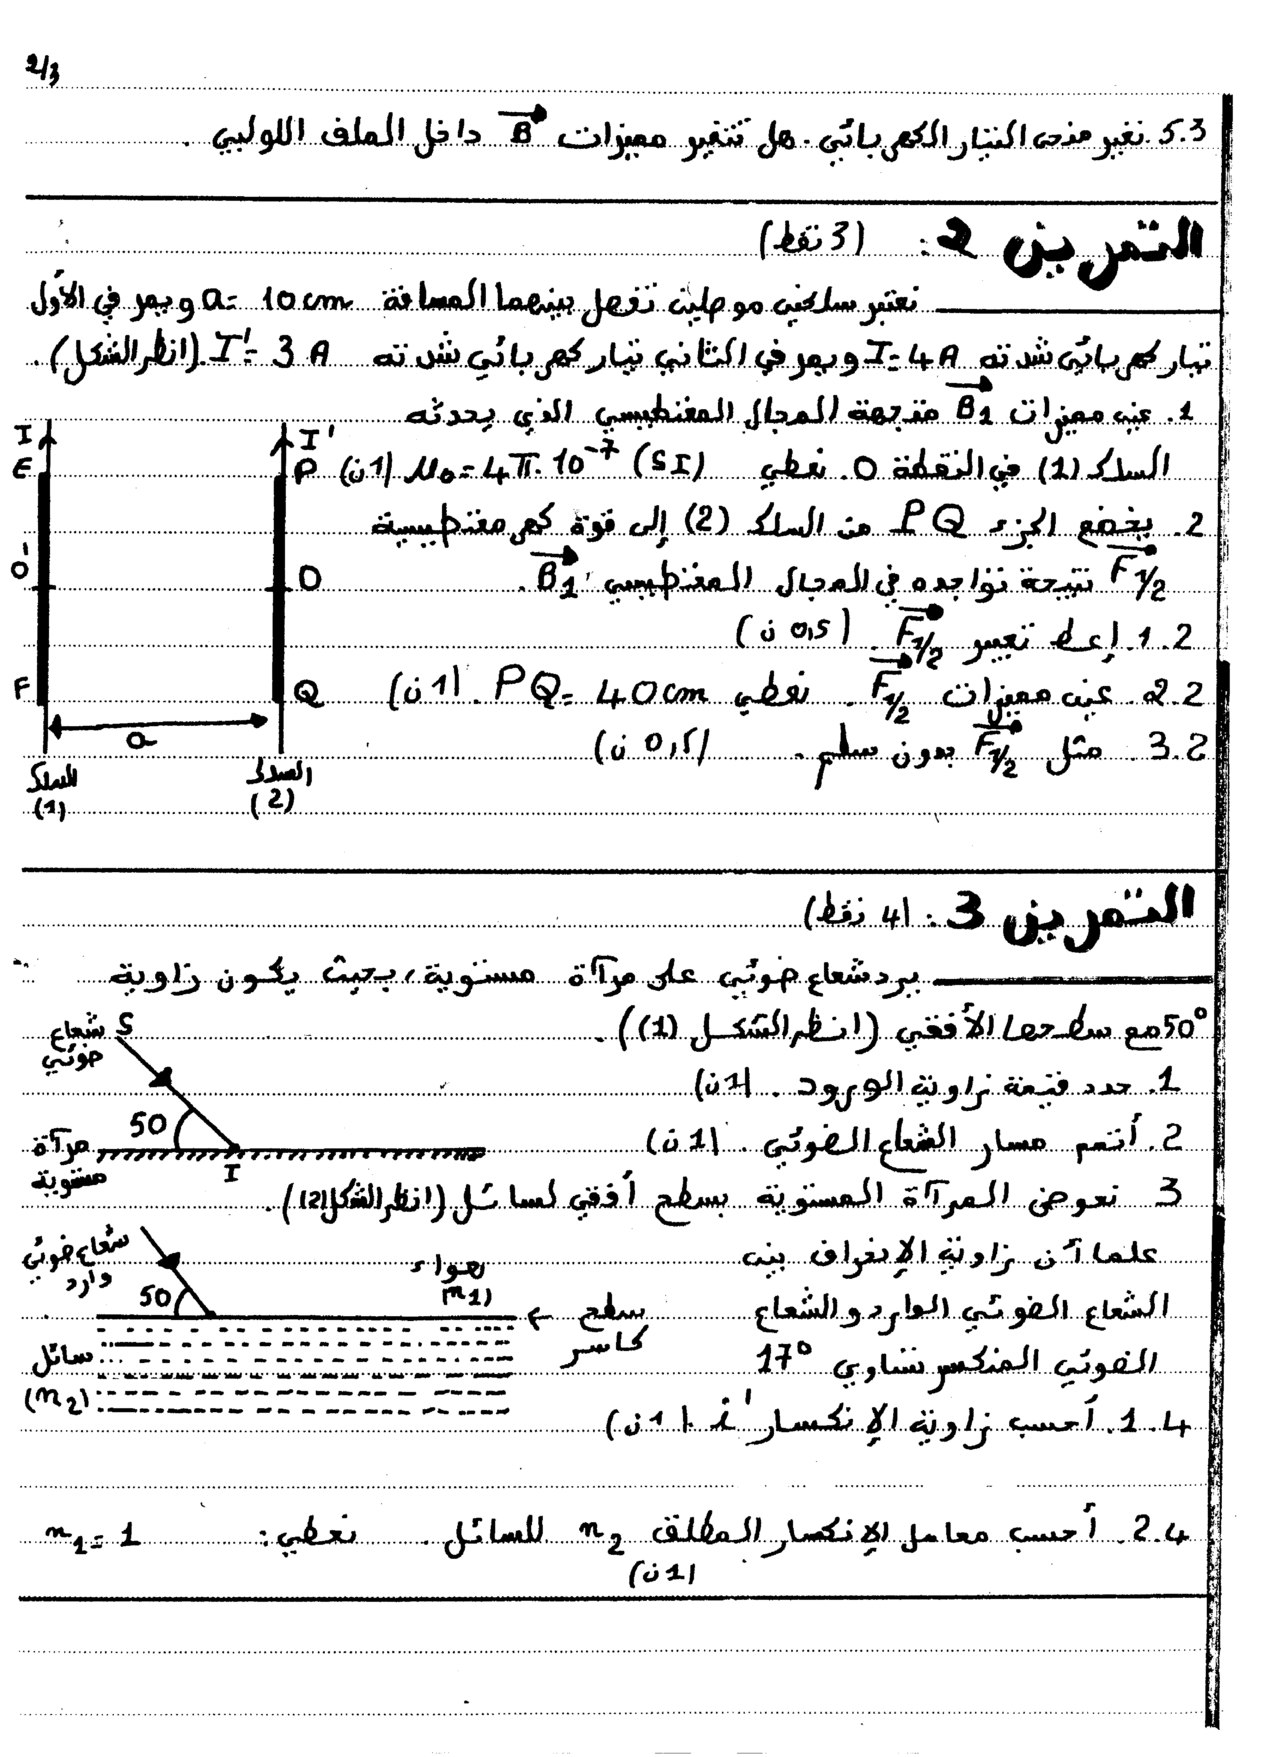 2/3
5.3. نغير منحى التيار الكهربائي. هل تتغير مميزات B داخل الملف اللولبي.
التمرين 2: (3 نقط)
نعتبر سلكين موصلين تفصل بينهما المسافة a= 10 cm ويمر في الأول
تيار كهربائي شدته I=4A ويمر في الثاني تيار كهربائي شدته I'= 3A (انظر الشكل).
1. عين مميزات B1 متجهة المجال المغنطيسي الذي يحدثه
السلك (1) في النقطة O. نعطي μ0=4π.10^-7 (SI) (1ن)
2. يخضع الجزء PQ من السلك (2) إلى قوة كهرمغنطيسية
F1/2 نتيجة تواجده في المجال المغنطيسي B1.
1.2. إعط تعبير F1/2. (0,5 ن)
2.2. عين مميزات F1/2. نعطي PQ= 40cm. (1ن)
3.2. مثل F1/2 بدون سلم. (0,5 ن)
I
I'
E
P
O'
O
F
Q
a
السلك
(1)
السلك
(2)
التمرين 3: (4 نقط)
يرد شعاع ضوئي على مرآة مستوية، بحيث يكون زاوية
50° مع سطحها الأفقي (انظر الشكل (1)).
1. حدد قيمة زاوية الورود. (1ن)
2. أتمم مسار الشعاع الضوئي. (1ن)
3 نعوض المرآة المستوية بسطح أفقي لسائل (انظر الشكل (2)).
علما أن زاوية الإنحراف بين
الشعاع الضوئي الوارد والشعاع
الضوئي المنكسر تساوي 17°
1.4. أحسب زاوية الإنكسار i' (1ن)
2.4. أحسب معامل الإنكسار المطلق n2 للسائل. نعطي: n1=1
(1ن)
شعاع
ضوئي
S
50
مرآة
مستوية
I
شعاع ضوئي
وارد
50
هواء
(n1)
سطح
كاسر
سائل
(n2)